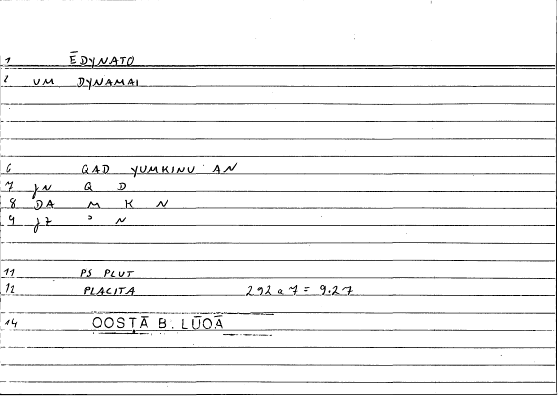 1 ĒDYNATO
2 VM DYNAMAI
6 QAD YUMKINU AN
7 JN Q D
8 DA M K N
9 JZ ' N
11 PS PLUT
12 PLACITA 292 a 7 = 9.27
14 QOSṬĀ B. LŪQĀ